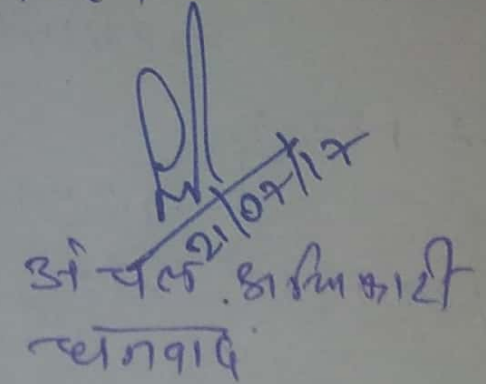 21/07/17
अंचल अधिकारी
धनबाद